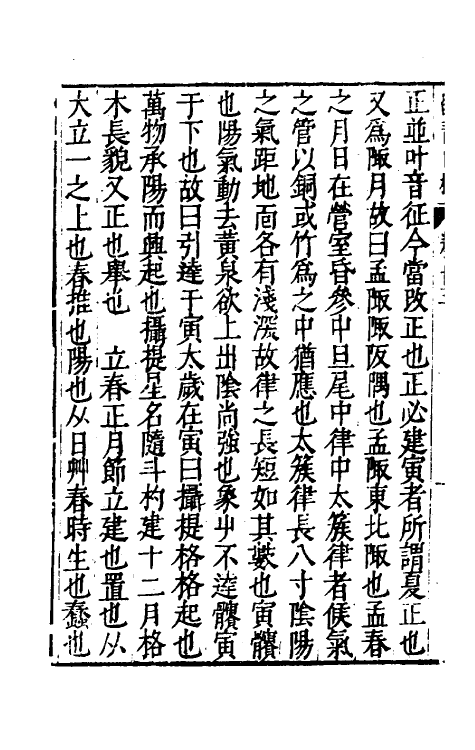 正並叶音征今當改正也正必建寅者所謂夏正也
又爲陬月故曰孟陬陬阪隅也孟陬東北陬也孟春
之月日在營室昏參中旦尾中律中太簇律者候氣
之管以銅或竹爲之中猶應也太簇律長八寸陰陽
之氣距地面各有淺深故律之長短如其數也寅髕
也陽氣動去黃泉欲上出陰尚強也象宀不達髕寅
于下也故曰引達于寅太歲在寅曰攝提格格起也
萬物承陽而興起也攝提星名隨斗杓建十二月格
木長貌又正也舉也 立春正月節立建也置也从
大立一之上也春推也陽也从日艸春時生也蠢也